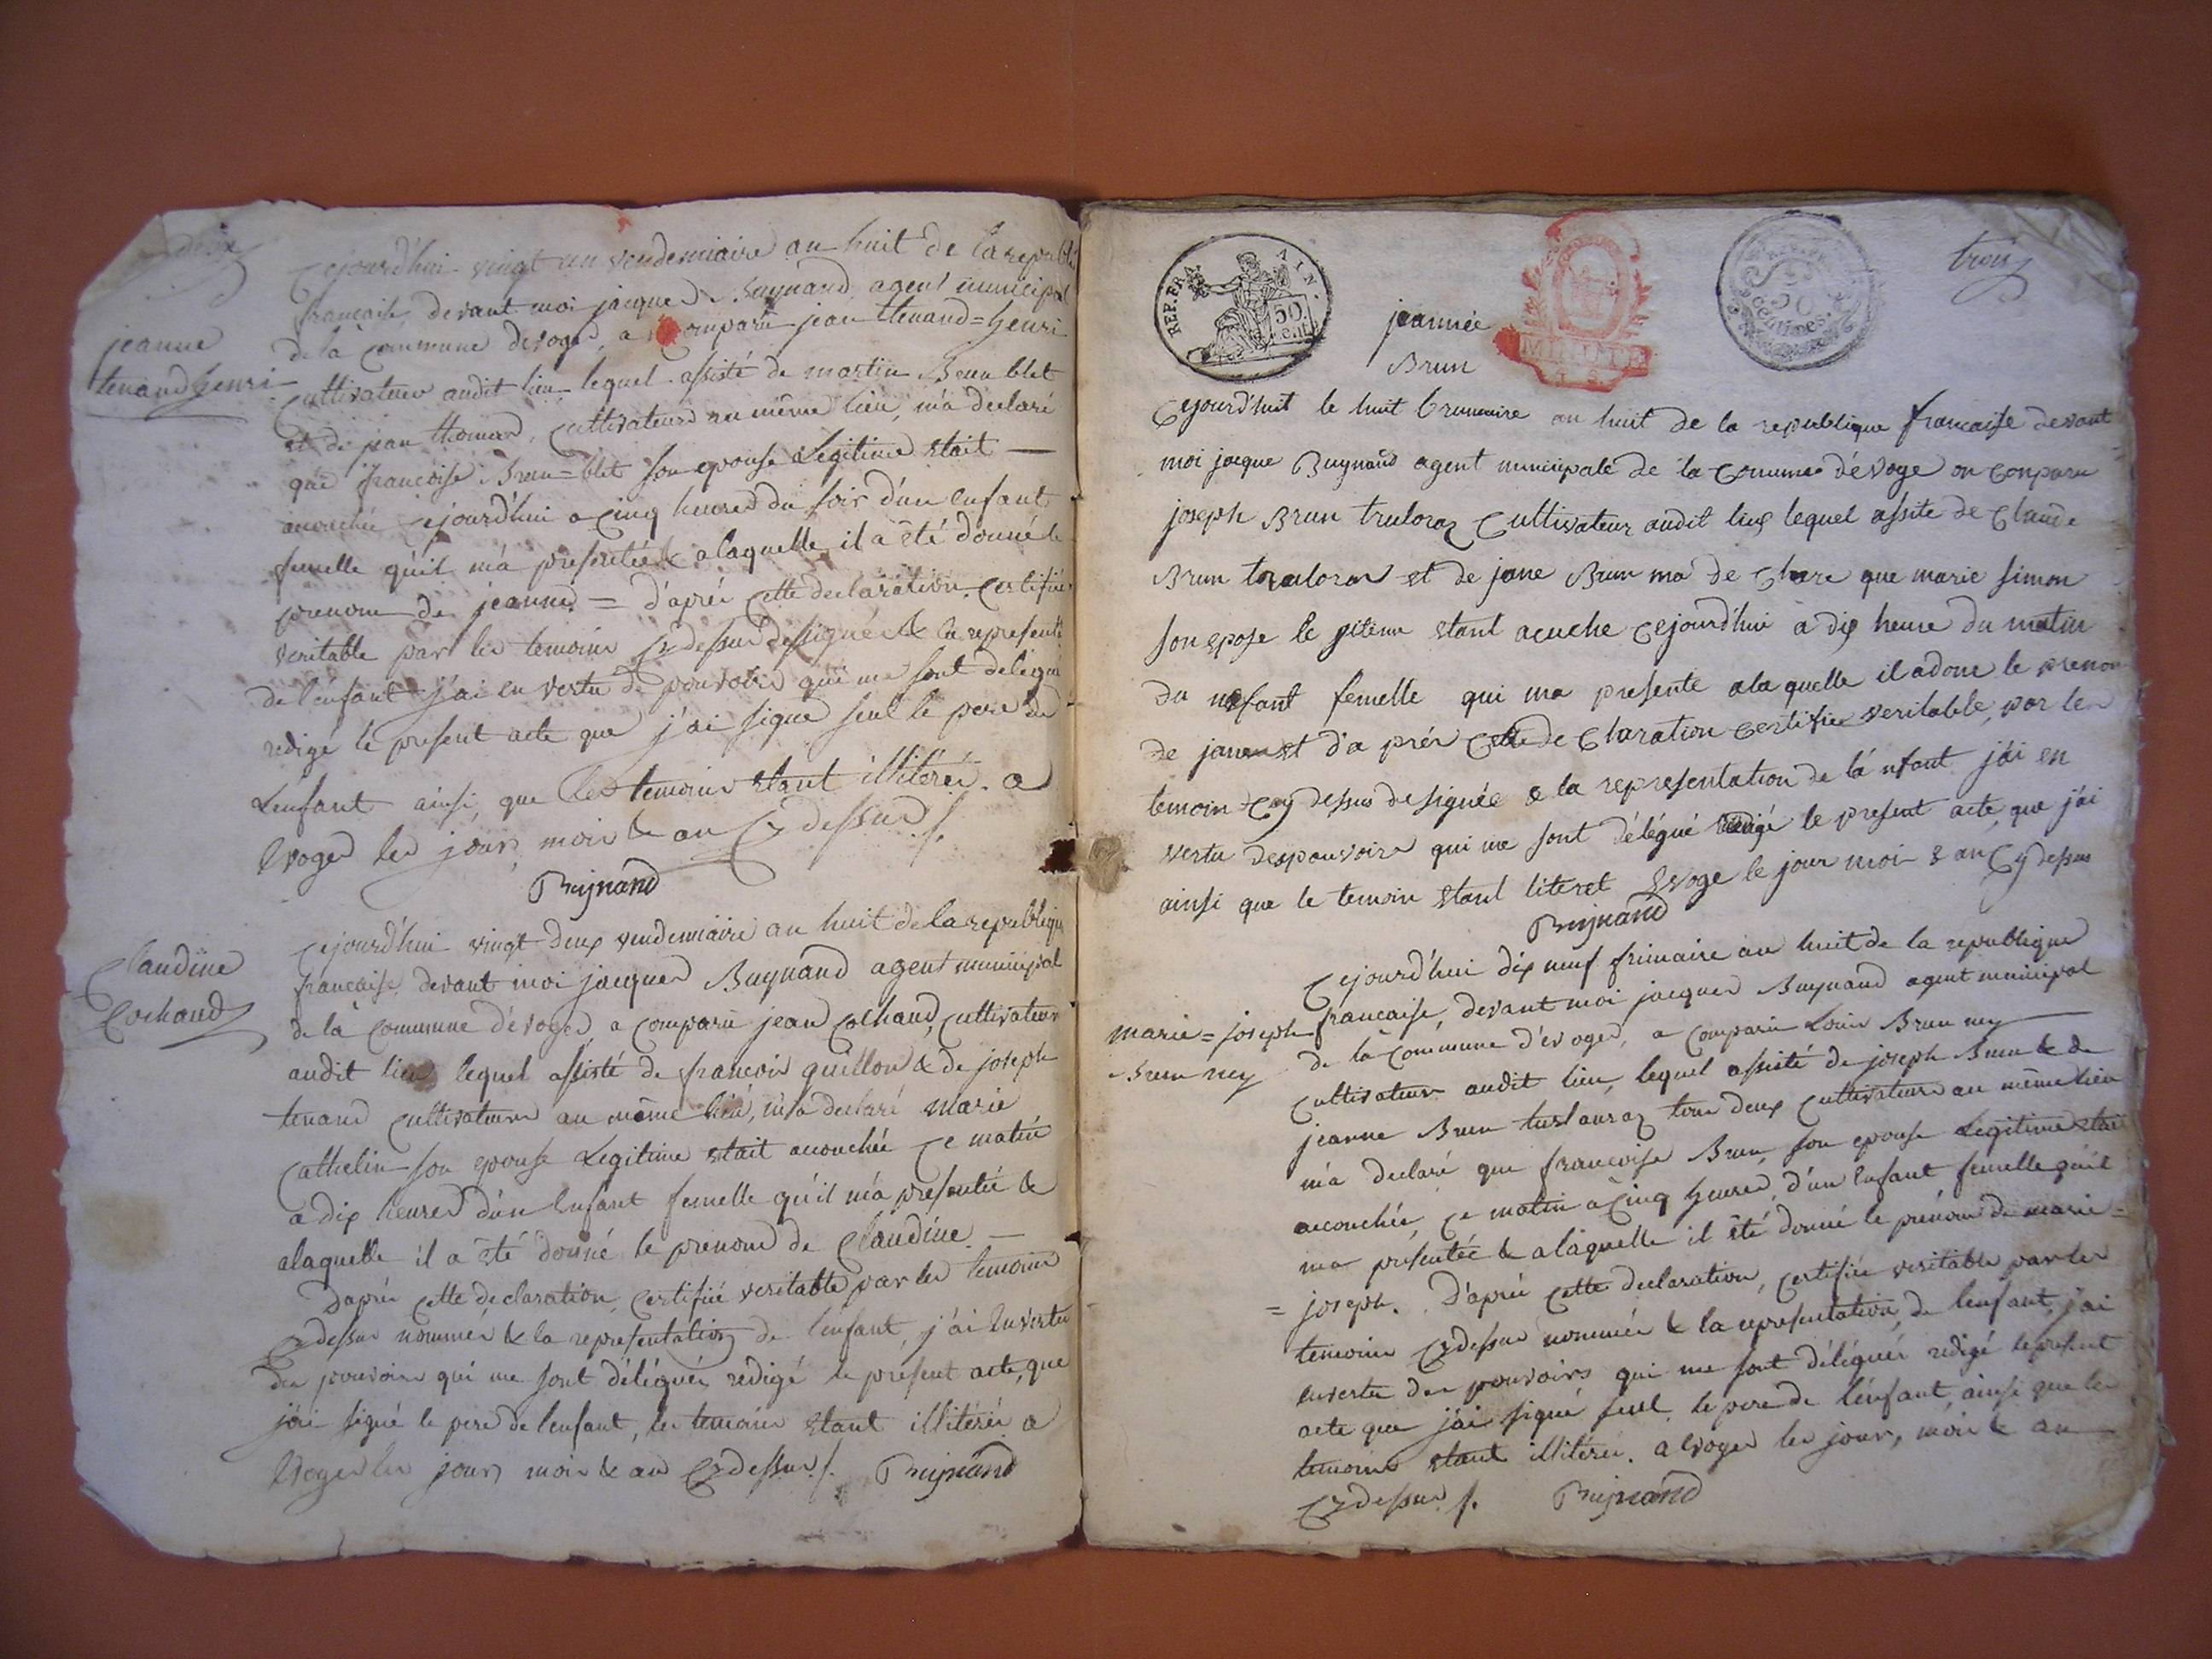 deux
Cejourd'hui vingt un vendemiaire an huit de la republi
francaise, devant moi jacques Buynand agent municipal
de la Commune devoges, a Comparu jean thenand=henri
Cultivateur audit lieu lequel assisté de martin Brun blet
et de jean thomas, Cultivateurs au même lieu, m'a declaré
que francoise Brun=blet son epouse Legitime etait —
accouchée Cejourd'hui a Cinq heures du soir d'un enfant
femelle qu'il m'a presentée & a laquelle il a été donné le
prenom de jeanne = d'aprés Cette declaration Certifiée
veritable par les temoins Cydessus designés & la represent
de l'enfant j'ai en vertu de pouvoirs qui me sont delegué
redigé le present acte que j'ai signé seul le pere de
L'enfant ainsi que les temoins etant illitérés. a
Evoges les jour, mois & an Cydessus /.
Bujnand
jeanne
tenand henri
Cejourd'hui vingt deux vendemiaire an huit de la republique
francaise devant moi jacques Buynand agent municipal
de la Commune d'evoges, a Comparu jean Cochand, Cultivateur
audit lieu lequel assisté de francois guillon & de joseph
tenand Cultivateurs au même lieu, m'a declaré marie
Cathelin son epouse Legitime etait accouchée Ce matin
a dix heures d'un Enfant femelle qu'il m'a presentée &
alaquelle il a été donné le prenom de Claudine —
D'aprés Cette declaration, Certifiée veritable par les temoins
Cydessus nommés & la representation de l'enfant, j'ai En vertu
des pouvoirs qui me sont délégués, redigé le présent acte, que
j'ai signé le pere de l'enfant, les temoins etant illitérés a
Evoges les jour, mois & an Cydessus /. Bujnand
Claudine
Cochand
REP. FRA AIN.
50. Cent
50 Centimes.
trois
jeannée
Brun
Cejourd'huit le huit brumaire an huit de la republique francaise devant
moi jacque Buynand agent municipale de la Comune d'évoge on conparu
joseph Brun truloraz Cultivateur audit lieu lequel assite de Claude
Brun truloraz et de jane Brun ma de Clare que marie simon
son epose le gitime etant acuche Cejourd'hui a dix heure du matin
du nefant femelle qui ma presente ala quelle il a done le prenom
de jane et d'a prés Cette de Claration certifiee veritable, par les
temoin Cy dessus designée & la representation de la nfant j'ai en
vertu des pouvoirs qui me sont délégué redigé le present acte, que j'ai
ainsi que le temoin etant literet Evoge le jour moi & an Cy dessus
Bujnand
Cejourd'hui dix neuf frimaire an huit de la republique
francaise, devant moi jacques Buynand agent municipal
de la Commune d'évoges, a Comparu Louis Brun ney
Cultivateur audit lieu, lequel assisté de joseph Brun & de
jeanne Brun turlauraz tous deux Cultivateurs au même lieu
m'a declaré que francoise Brun son epouse Legitime etait
accouchée, Ce matin a Cinq heures, d'un Enfant femelle qu'il
ma presentée & alaquelle il été donné le prénom de marie=
= joseph. D'aprés Cette declaration, Certifiée veritable par les
temoins Cydessus nommés & la representation de l'enfant, j'ai
en vertu des pouvoirs qui me sont délégués redigé le present
acte que j'ai signé seul le pere de l'enfant, ainsi que les
temoins etant illitérés. a Evoges les jour, mois & an
Cydessus /. Bujnand
marie=joseph
Brun ney